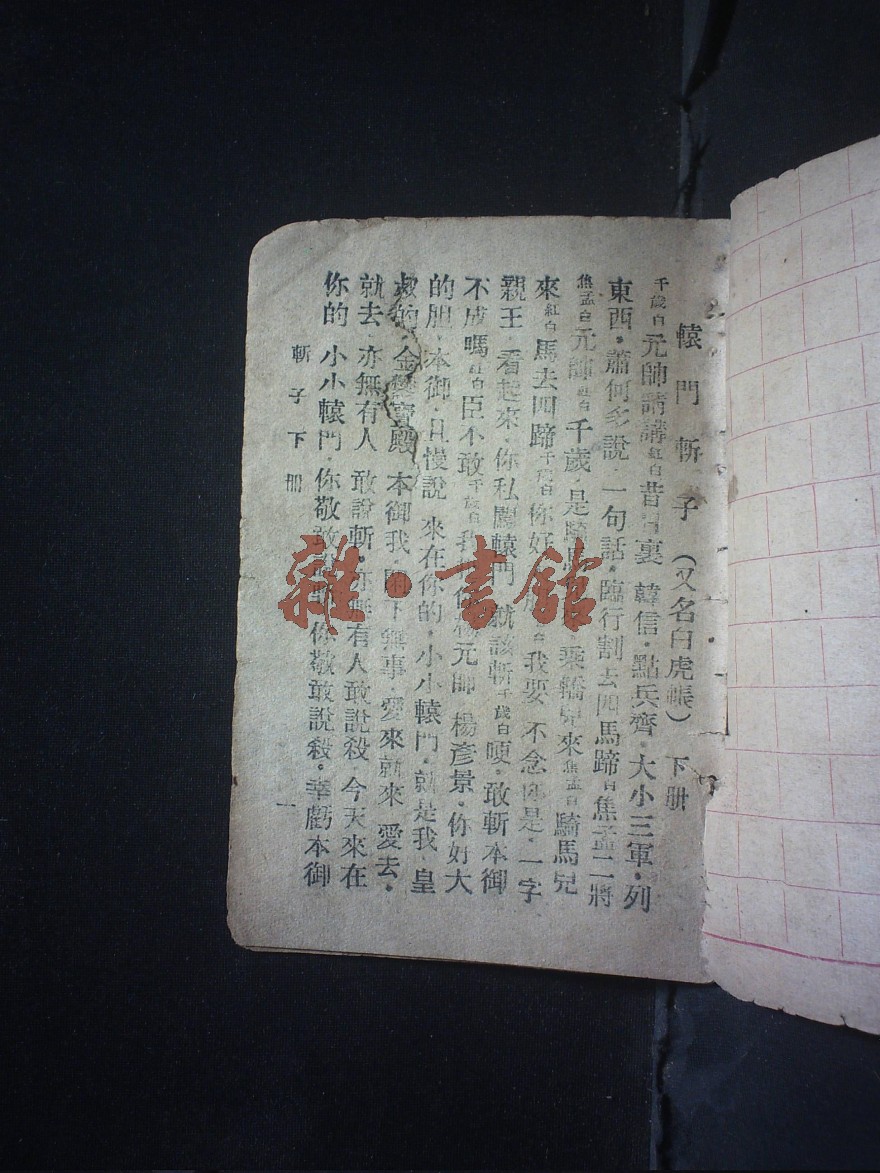 轅門斬子(又名白虎帳)下册
千歲白元帥請講紅白昔日裏 韓信·點兵齊·大小三軍·列
東西·蕭何多說 一句話·臨行割去四馬蹄白焦孟二將
焦孟白元帥紅白千歲·是騎馬 乘轎兒來焦孟白騎馬兒
來紅白馬去四蹄千歲白你好 我要 不念你是·一字
親王·看起來·你私闖轅門·就該斬千歲白哽·敢斬本御
不成嗎紅白臣不敢千歲白我 楊元帥 楊彥景·你好大
的胆·本御·且慢說 來在你的·小小轅門·就是我·皇
叔的·金鑾寶殿 本御我·閑下無事·愛來就來 愛去·
就去·亦無有人 敢說斬·亦無有人敢說殺·今天來在
你的 小小轅門·你敬敢說斬 你敬敢說殺·幸虧本御
斬子下册
一
雜·書館